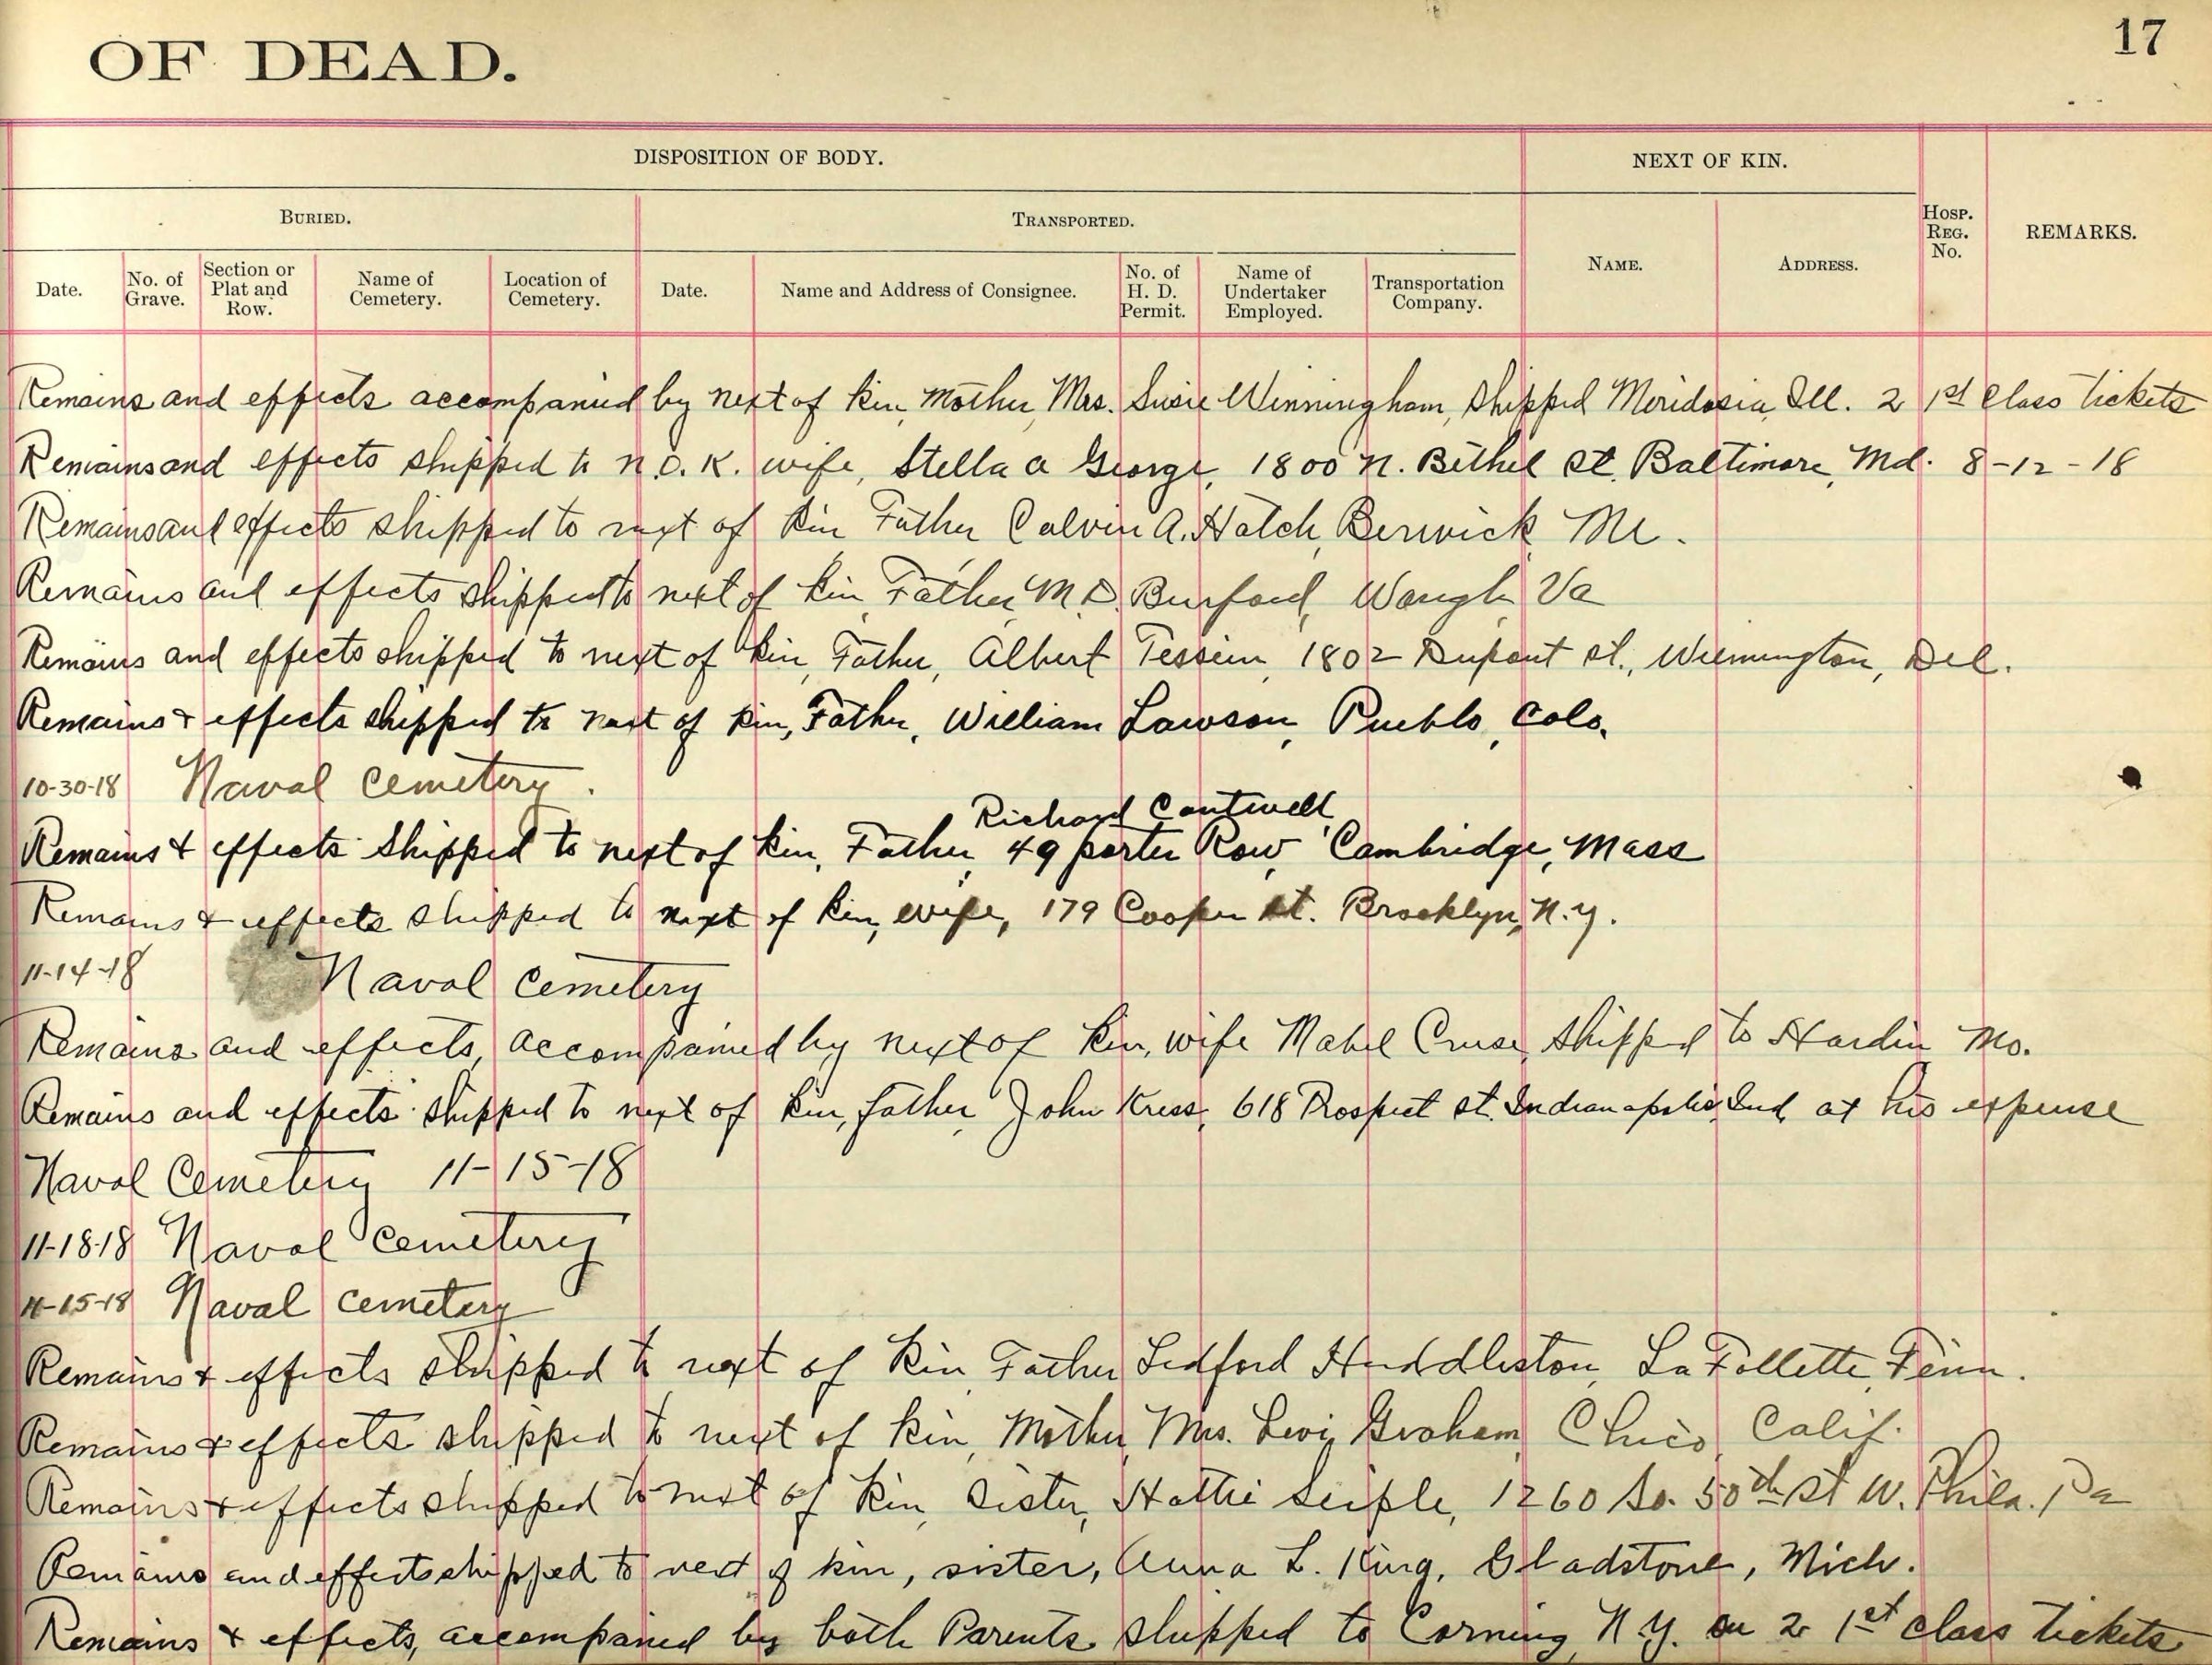 OF DEAD.
17
DISPOSITION OF BODY.
NEXT OF KIN.
BURIED.
TRANSPORTED.
HOSP. REG. No.
REMARKS.
Date.
No. of Grave.
Section or Plat and Row.
Name of Cemetery.
Location of Cemetery.
Date.
Name and Address of Consignee.
No. of H. D. Permit.
Name of Undertaker Employed.
Transportation Company.
NAME.
ADDRESS.
Remains and effects accompanied by next of kin, mother, Mrs. Susie Winningham, shipped Meridosia, Ill. 2 1st class tickets
Remains and effects shipped to N.O.K. wife, Stella A George, 1800 N. Bethel St. Baltimore, Md. 8-12-18
Remains and effects shipped to next of kin Father Calvin A. Hatch, Berwick, Me.
Remains and effects shipped to next of kin, Father, M.D. Burford, Waugh, Va
Remains and effects shipped to next of kin, Father, Albert Tessein, 1802 Dupont st., Wilmington, Del.
Remains & effects shipped to next of kin, Father, William Lawson, Pueblo, Colo.
10-30-18 Naval Cemetery.
Richard Cantwell
Remains & effects shipped to next of kin, Father, 49 porter Row, Cambridge, Mass
Remains & effects shipped to next of kin, wife, 179 Cooper st. Brooklyn, N.Y.
11-14-18 Naval Cemetery
Remains and effects, accompanied by next of kin, wife Mabel Cruse, shipped to Hardin Mo.
Remains and effects shipped to next of kin, father, John Kress, 618 Prospect st. Indianapolis, Ind, at his expense
Naval Cemetery 11-15-18
11-18-18 Naval Cemetery
11-15-18 Naval Cemetery
Remains & effects shipped to next of kin, Father Ledford Huddleston, La Follette, Tenn.
Remains & effects shipped to next of kin, Mother, Mrs. Levi Graham, Chico, Calif.
Remains & effects shipped to next of kin, sister, Hattie Seiple, 1260 So. 50th St W. Phila. Pa
Remains and effects shipped to next of kin, sister, Anna L. King, Gladstone, Mich.
Remains & effects, accompanied by both Parents shipped to Corning, N.Y. on 2 1st class tickets